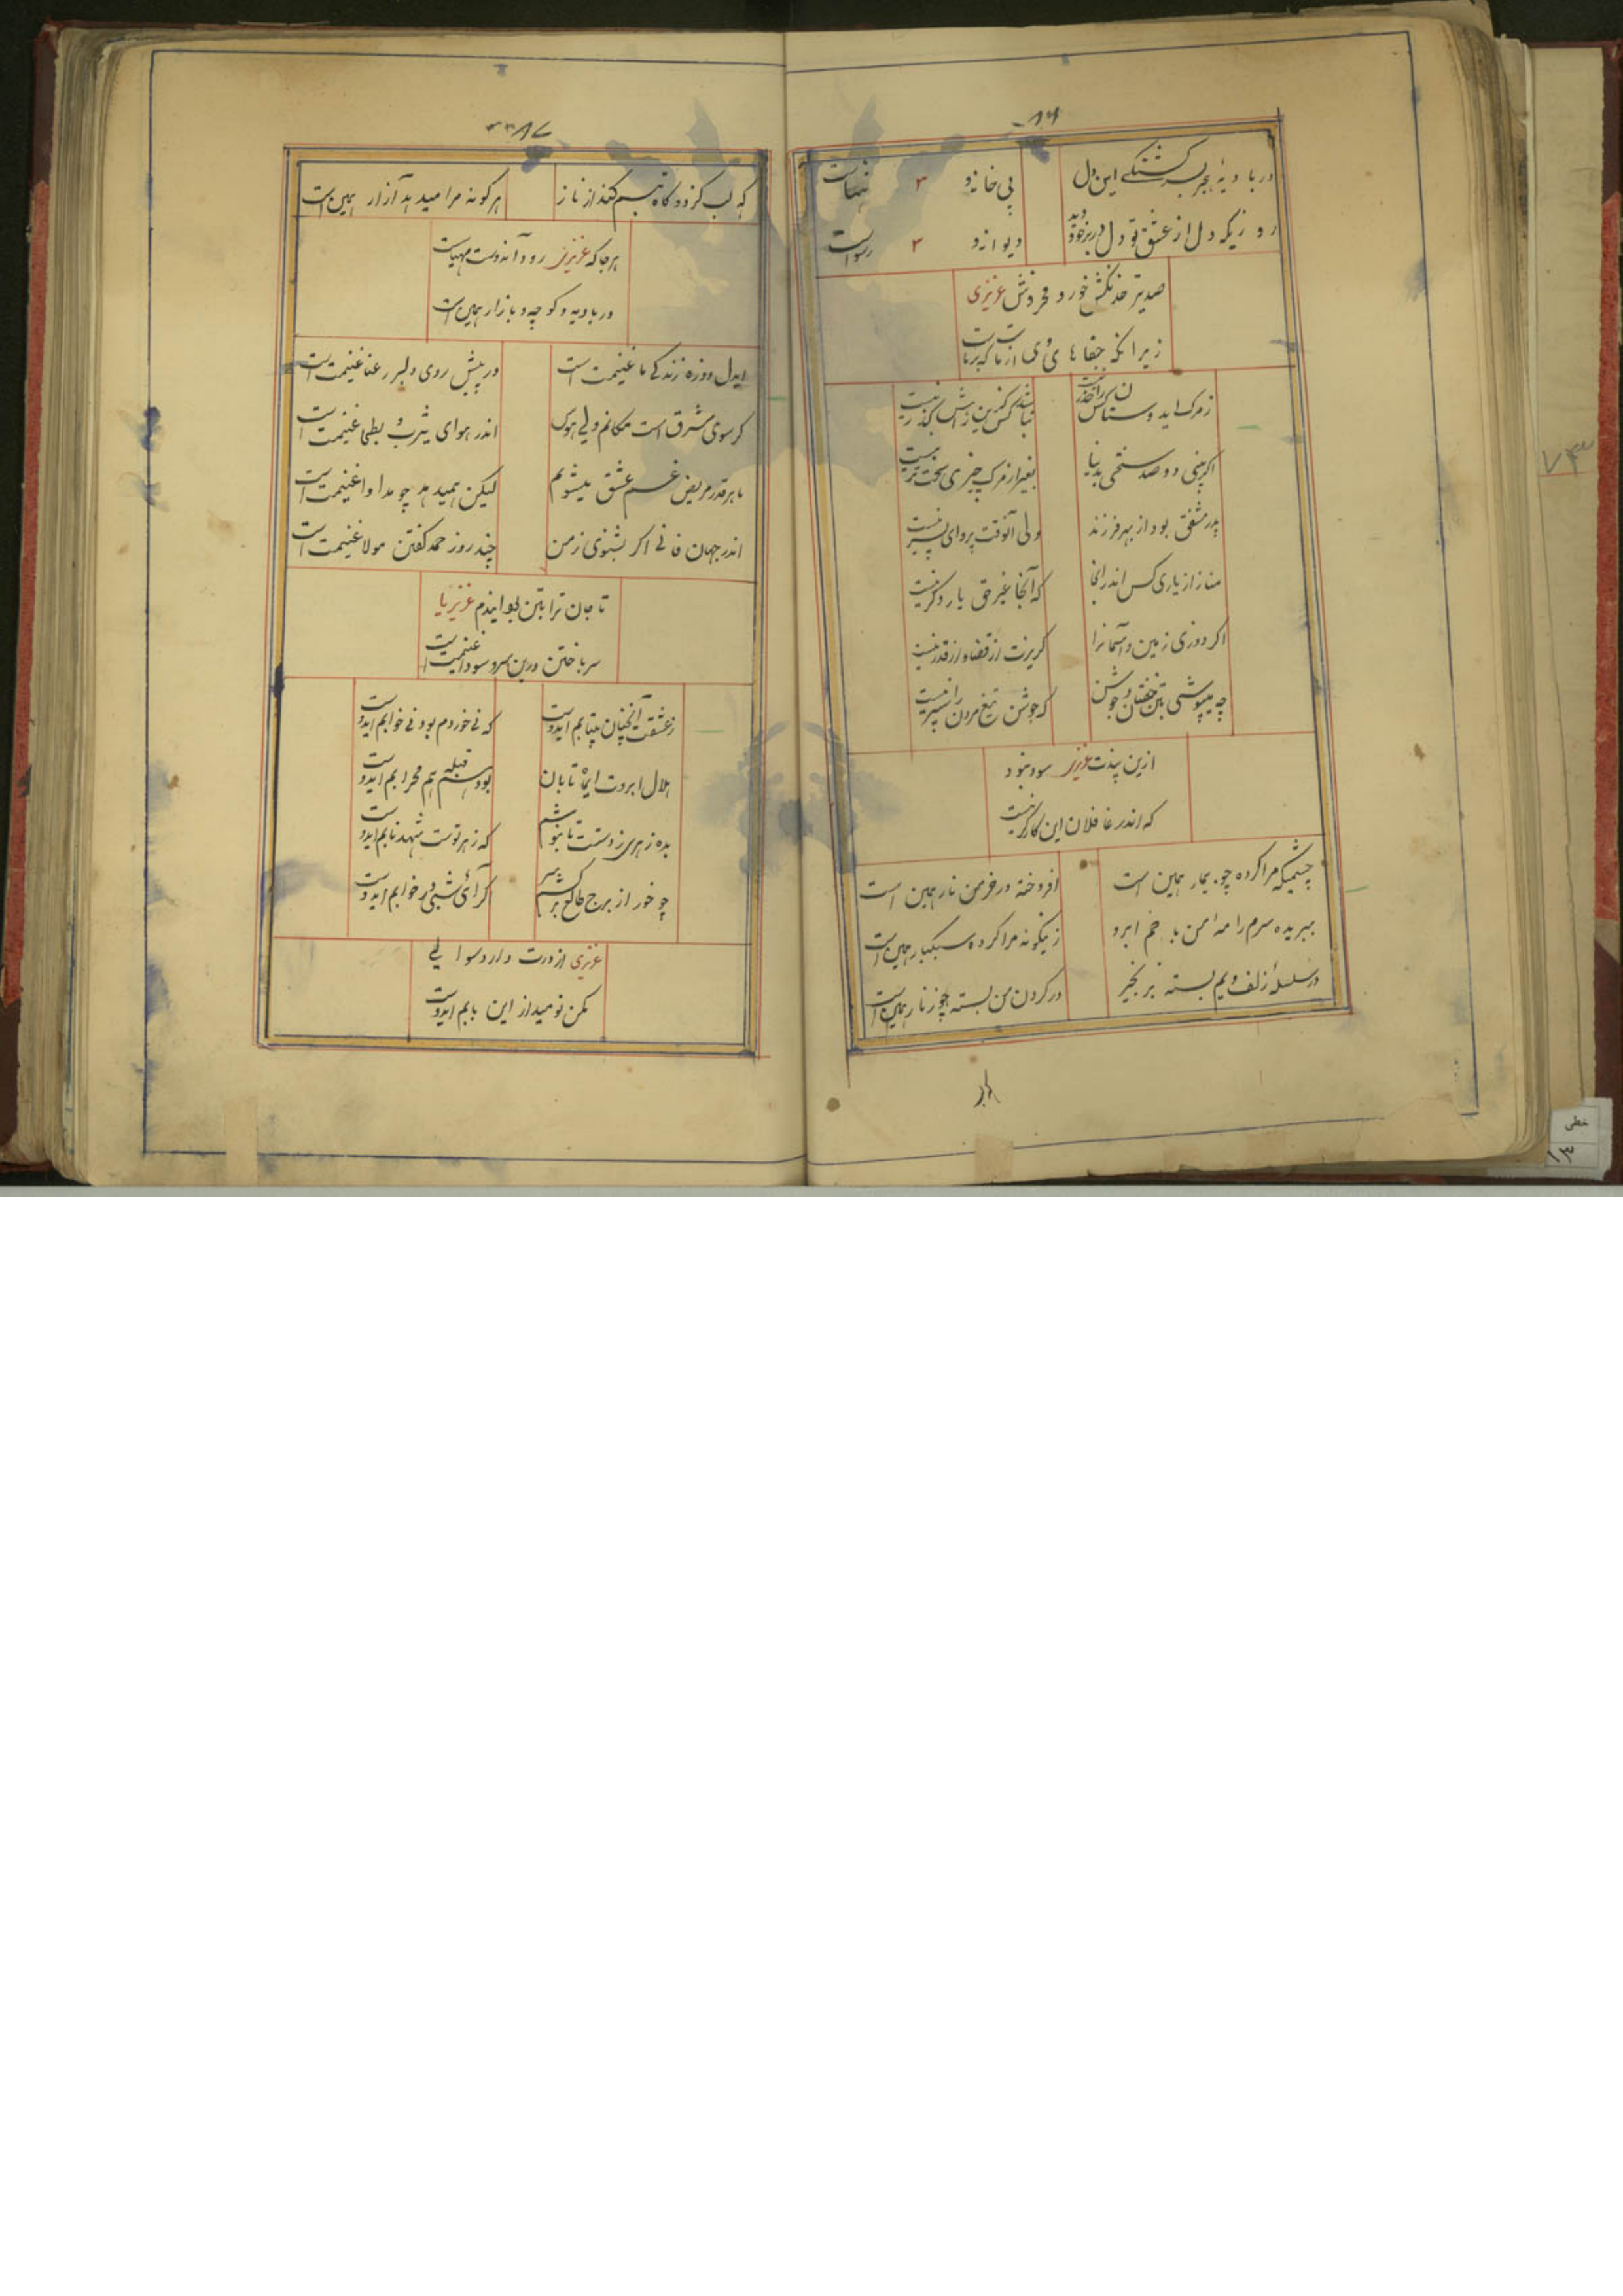 ۸۶
در بادیهٔ هجر به سرگشتگی این دل
بی خانه و ۲ تنهاست
رو زیکه دل از عشق تو دل در بر خود دید
دیوانه و ۲ رسواست
صد تیر خدنگش خور و مخروش عزیزی
زیرا که جفا های وی از ماست که بر ماست
ز مرگ ایدوستان کس را حذر نیست
نباشد کس کزین راهش گذر نیست
اگر بینی دو صد سختی بدنیا
بغیر از مرگ چیزی سخت تر نیست
پدر مشفق بود از بهر فرزند
ولی آنوقت پروای پسر نیست
مناز از یاری کس اندر انجا
که آنجا غیر حق یار دگر نیست
اگر دوزی زمین و آسمانرا
گریزت از قضا و از قدر نیست
چه میپوشی بتن خفتان و جوشن
که جوشن تیغ مردن را سپر نیست
ازین پندت عزیز سود نبود
که اندر غافلان این کارگر نیست
چشمیکه مرا کرده چو بیمار همین است
افروخته در خرمن نار همین است
ببریده سرم را مه من با خم ابرو
زینگونه مرا کرده سبکبار همین است
در سلسلهٔ زلف ویم بسته بزنجیر
در گردن من بسته چو زنار همین است
۸۷
که لب گزد و گاه تبسم کند از ناز
هر گونه مرا میدهد آزار همین است
هر جا که عزیز رود آندوست مهیاست
در بادیه و کوچه و بازار همین است
ایدل دو روزه زندگی ما غنیمت است
در پیش روی دلبر رعنا غنیمت است
گر سوی مشرق است مکانم ولی هوس
اندر هوای یثرب و بطحا غنیمت است
ما هر قدر مریض غم عشق میشویم
لیکن همیدهد چو مداوا غنیمت است
اندر جهان فانی اگر بشنوی ز من
چند روز حمد گفتن مولا غنیمت است
تا جان ترا بتن بود ایندم عزیزیا
سر باختن درین سر و سودا غنیمت است
ز عشقت آنچنان بیتابم ایدوست
که نی خوردم بود نی خوابم ایدوست
هلال ابروت ایماه تابان
بود قبله هم محرابم ایدوست
بده زهری ز دستت تا بنوشم
که زهر توست شهد نابم ایدوست
چو خور از برج طالع سر برکشم
گر آئی شبی در خوابم ایدوست
عزیزی از درت دارد سوالی
مکن نومید از این بابم ایدوست
۷۳
خطی